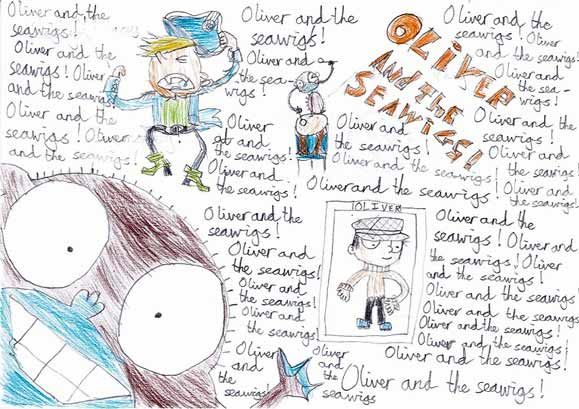 Oliver and the
seawigs!
Oliver and the
seawigs! Oliver
and the seawigs
Oliver and the
seawigs! Oliver
and the seawigs!
Oliver and the
seawigs!
Oliver and
the sea-
wigs!
Oliver
and
the seawigs!
Oliver and
the seawigs!
OLIVER
AND THE
SEAWIGS!
Oliver and the
seawigs! Oliver
and the seawigs!
Oliver and
the sea-
wigs!
Oliver and the
seawigs!
Oliver and
the seawigs!
Oliver and
the seawigs!
Oliver and the
seawigs!
Oliver and the seawigs!
Oliver and the seawigs!
Oliver and the
seawigs!
Oliver and
the seawigs!
Oliver and
the seawigs!
Oliver and
the seawigs!
Oliver
and
the
seawigs
Oliver
and
the
seawigs
OLIVER
Oliver and the
seawigs! Oliver and
the seawigs! Oliver
and the seawigs!
Oliver and the seawigs!
Oliver and the seawigs!
Oliver and the seawigs!
Oliver and the seawigs!
Oliver and the seawigs!
Oliver and the seawigs!